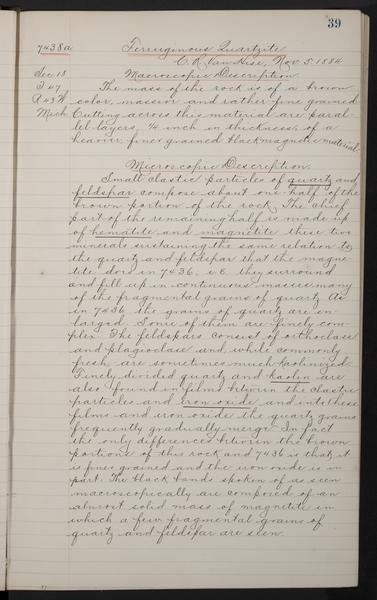 39
7438a Ferruginous Quartzite
C. R. Van Hise, Nov. 5. 1884
Sec. 18 Macroscopic Description.
T 47 The mass of the rock is of a brown
R 43 W color, massive and rather fine grained
Mich. Cutting across this material are paral-
lel layers, 1/4 inch in thickness, of a
heavier, finer grained black magnetic material.
Microscopic Description.
Small clastic particles of quartz and
feldspar compose about one-half of the
brown portion of the rock. The chief
part of the remaining half is made up
of hematite and magnetite these two
minerals sustaining the same relation to
the quartz and feldspar that the magne-
tite does in 7436, i.e. they surround
and fill up in continuous masses many
of the fragmental grains of quartz. As
in 7436 the grains of quartz are en-
larged. Some of them are finely com-
plex. The feldspars consist of orthoclase
and plagioclase and, while commonly
fresh, are sometimes much kaolinized.
Finely divided quartz and kaolin are
also found in films between the clastic
particles and iron oxide and into these
films and iron oxide the quartz grains
frequently gradually merge. In fact
the only differences between the brown
portions of this rock and 7436 is that it
is finer grained and the iron oxide is in
part. The black bands spoken of as seen
macroscopically are composed of an
almost solid mass of magnetite in
which a few fragmental grains of
quartz and feldspar are seen.